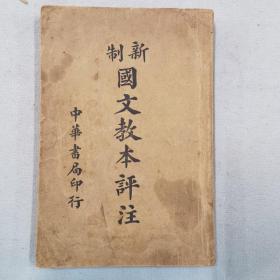 新制
國文教本評注
中華書局印行